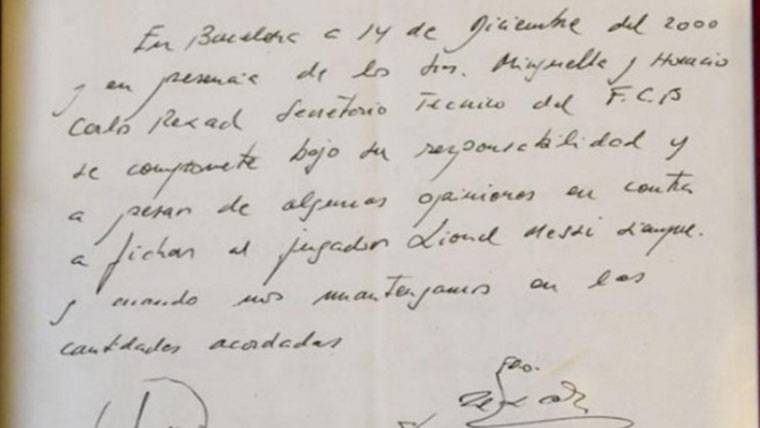 En Barcelona a 14 de Diciembre del 2000
y en presencia de los Srs. Minguella y Horacio
Carlos Rexach Secretario Técnico del F.C.B
se compromete bajo su responsabilidad y
a pesar de algunas opiniones en contra
a fichar al jugador Lionel Messi siempre
y cuando nos mantengamos en las
cantidades acordadas
Fdo.